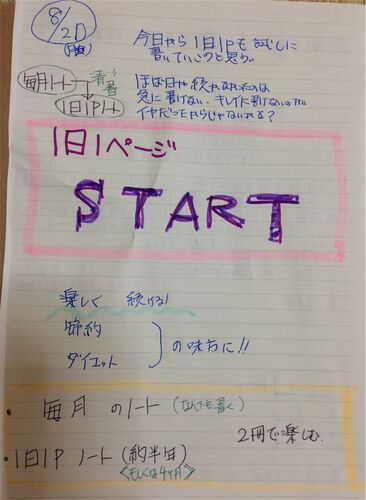 8/20
(月曜)
今日から1日1Pも
書いていこうと思う。
毎月ノート
清書
1日1Pノート
ほぼ日が続かなかったのは
急に書けない、キレイに書けないのが
イヤだったからじゃないかな?
1日1ページ
START
楽しく 続ける!
節約
ダイエット
の味方に!!
・毎月のノート(なんでも書く)
2冊で楽しむ
・1日1P ノート(約半年)
<もしくは4ヶ月>